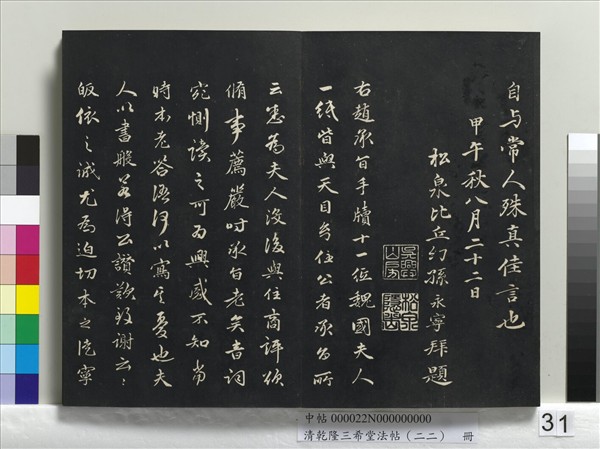 自与常人殊真佳言也
甲午秋八月二十二日
松泉比丘幻孫永寧拜題
右趙承旨手牘十一位魏國夫人
一紙皆與天目
公者承旨所
云悲為夫人沒後與住商評頌
脩事薦嚴時承旨老矣書詞
惋惻讀之可為興感不知當
時本老答語何以寫其憂也夫
人以書般若得公讚歎致謝云〻
皈依之誠尤為迫切本之從寧
中帖 000022N000000000
清乾隆三希堂法帖(二二) 冊
31